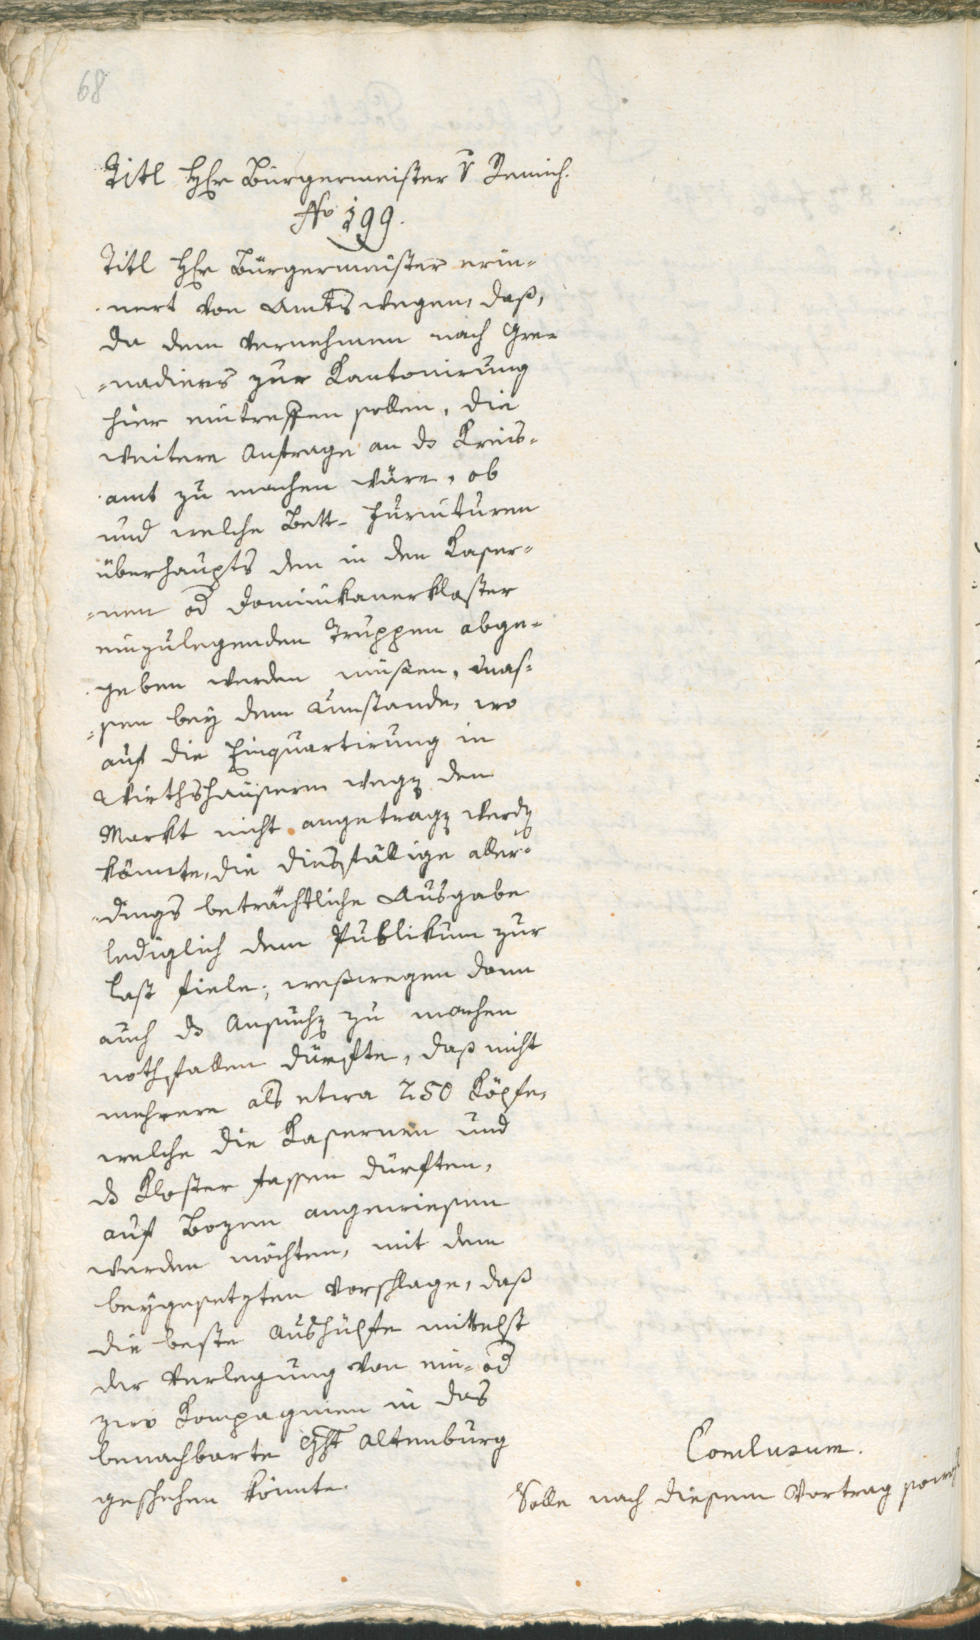 68
Titl Hr Bürgermeister v Remich.
No 199.
Titl Hr Bürgermeister erin-
nert von Amts wegen, daß,
da dem Vernehmen nach Gre-
-nadiers zur Kantonirung
hier eintreffen sollen, die
weitere Anfrage an ds Kreis-
amt zu machen wäre, ob
und welche Bett-Furnituren
überhaupts den in den Kaser-
-nen od Dominikanerkloster
einzulegenden Truppen abge-
geben werden müßen, mas-
-sen bey dem Umstande, wo
auf die Einquartirung in
Wirthshäusern weg den
Markt nicht angetrag werd
könnte, die diesfällige aller-
-dings beträchtliche Ausgabe
lediglich dem Publikum zur
Last fiele; weßwegen dann
auch ds Ansuch zu machen
nothfallen dürfte, daß nicht
mehrere als etwa 250 Köpfe,
welche die Kasernen und
ds Kloster fassen dürften,
auf Bozen angewiesen
werden möchten, mit dem
beygesetzten Vorschlage, daß
die beste Aushülfe mittelst
der Verlegung von ein- od
zwo Kompagnien in das
benachbarte Ght Altenburg
geschehen könnte.
Conclusum.
Solle nach diesem Vortrag